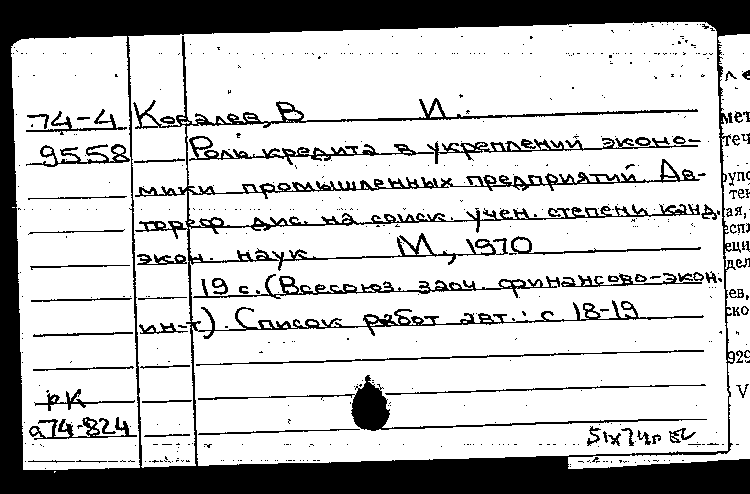 74-4 Ковалев, В И.
9558 Роль кредита в укреплений эконо-
мики промышленных предприятий Ав-
тореф. дис. на соиск. учен. степени канд.
экон. наук. М., 1970
19 с. (Всесоюз. заоч. финансово-экон.
ин-т). Список работ авт.: с 18-19
рК
а74-824